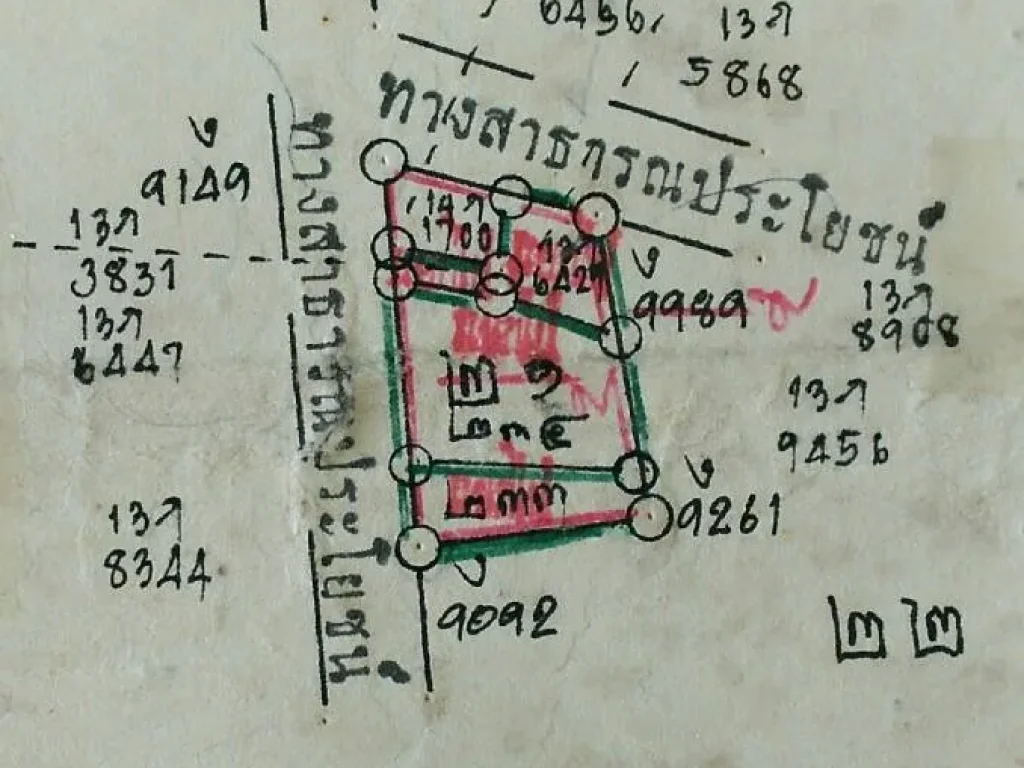 6436, 13ว
5868
ทางสาธารณประโยชน์
ง
9149
13ว
3831
13ว
6447
ทางสาธารณประโยชน์
14ว
1700
13ว
642
ง
9989
13ว
8908
๒๓๔
13ว
9456
๒๓๓
ง
9261
13ว
8344
ง
9092
๒๒